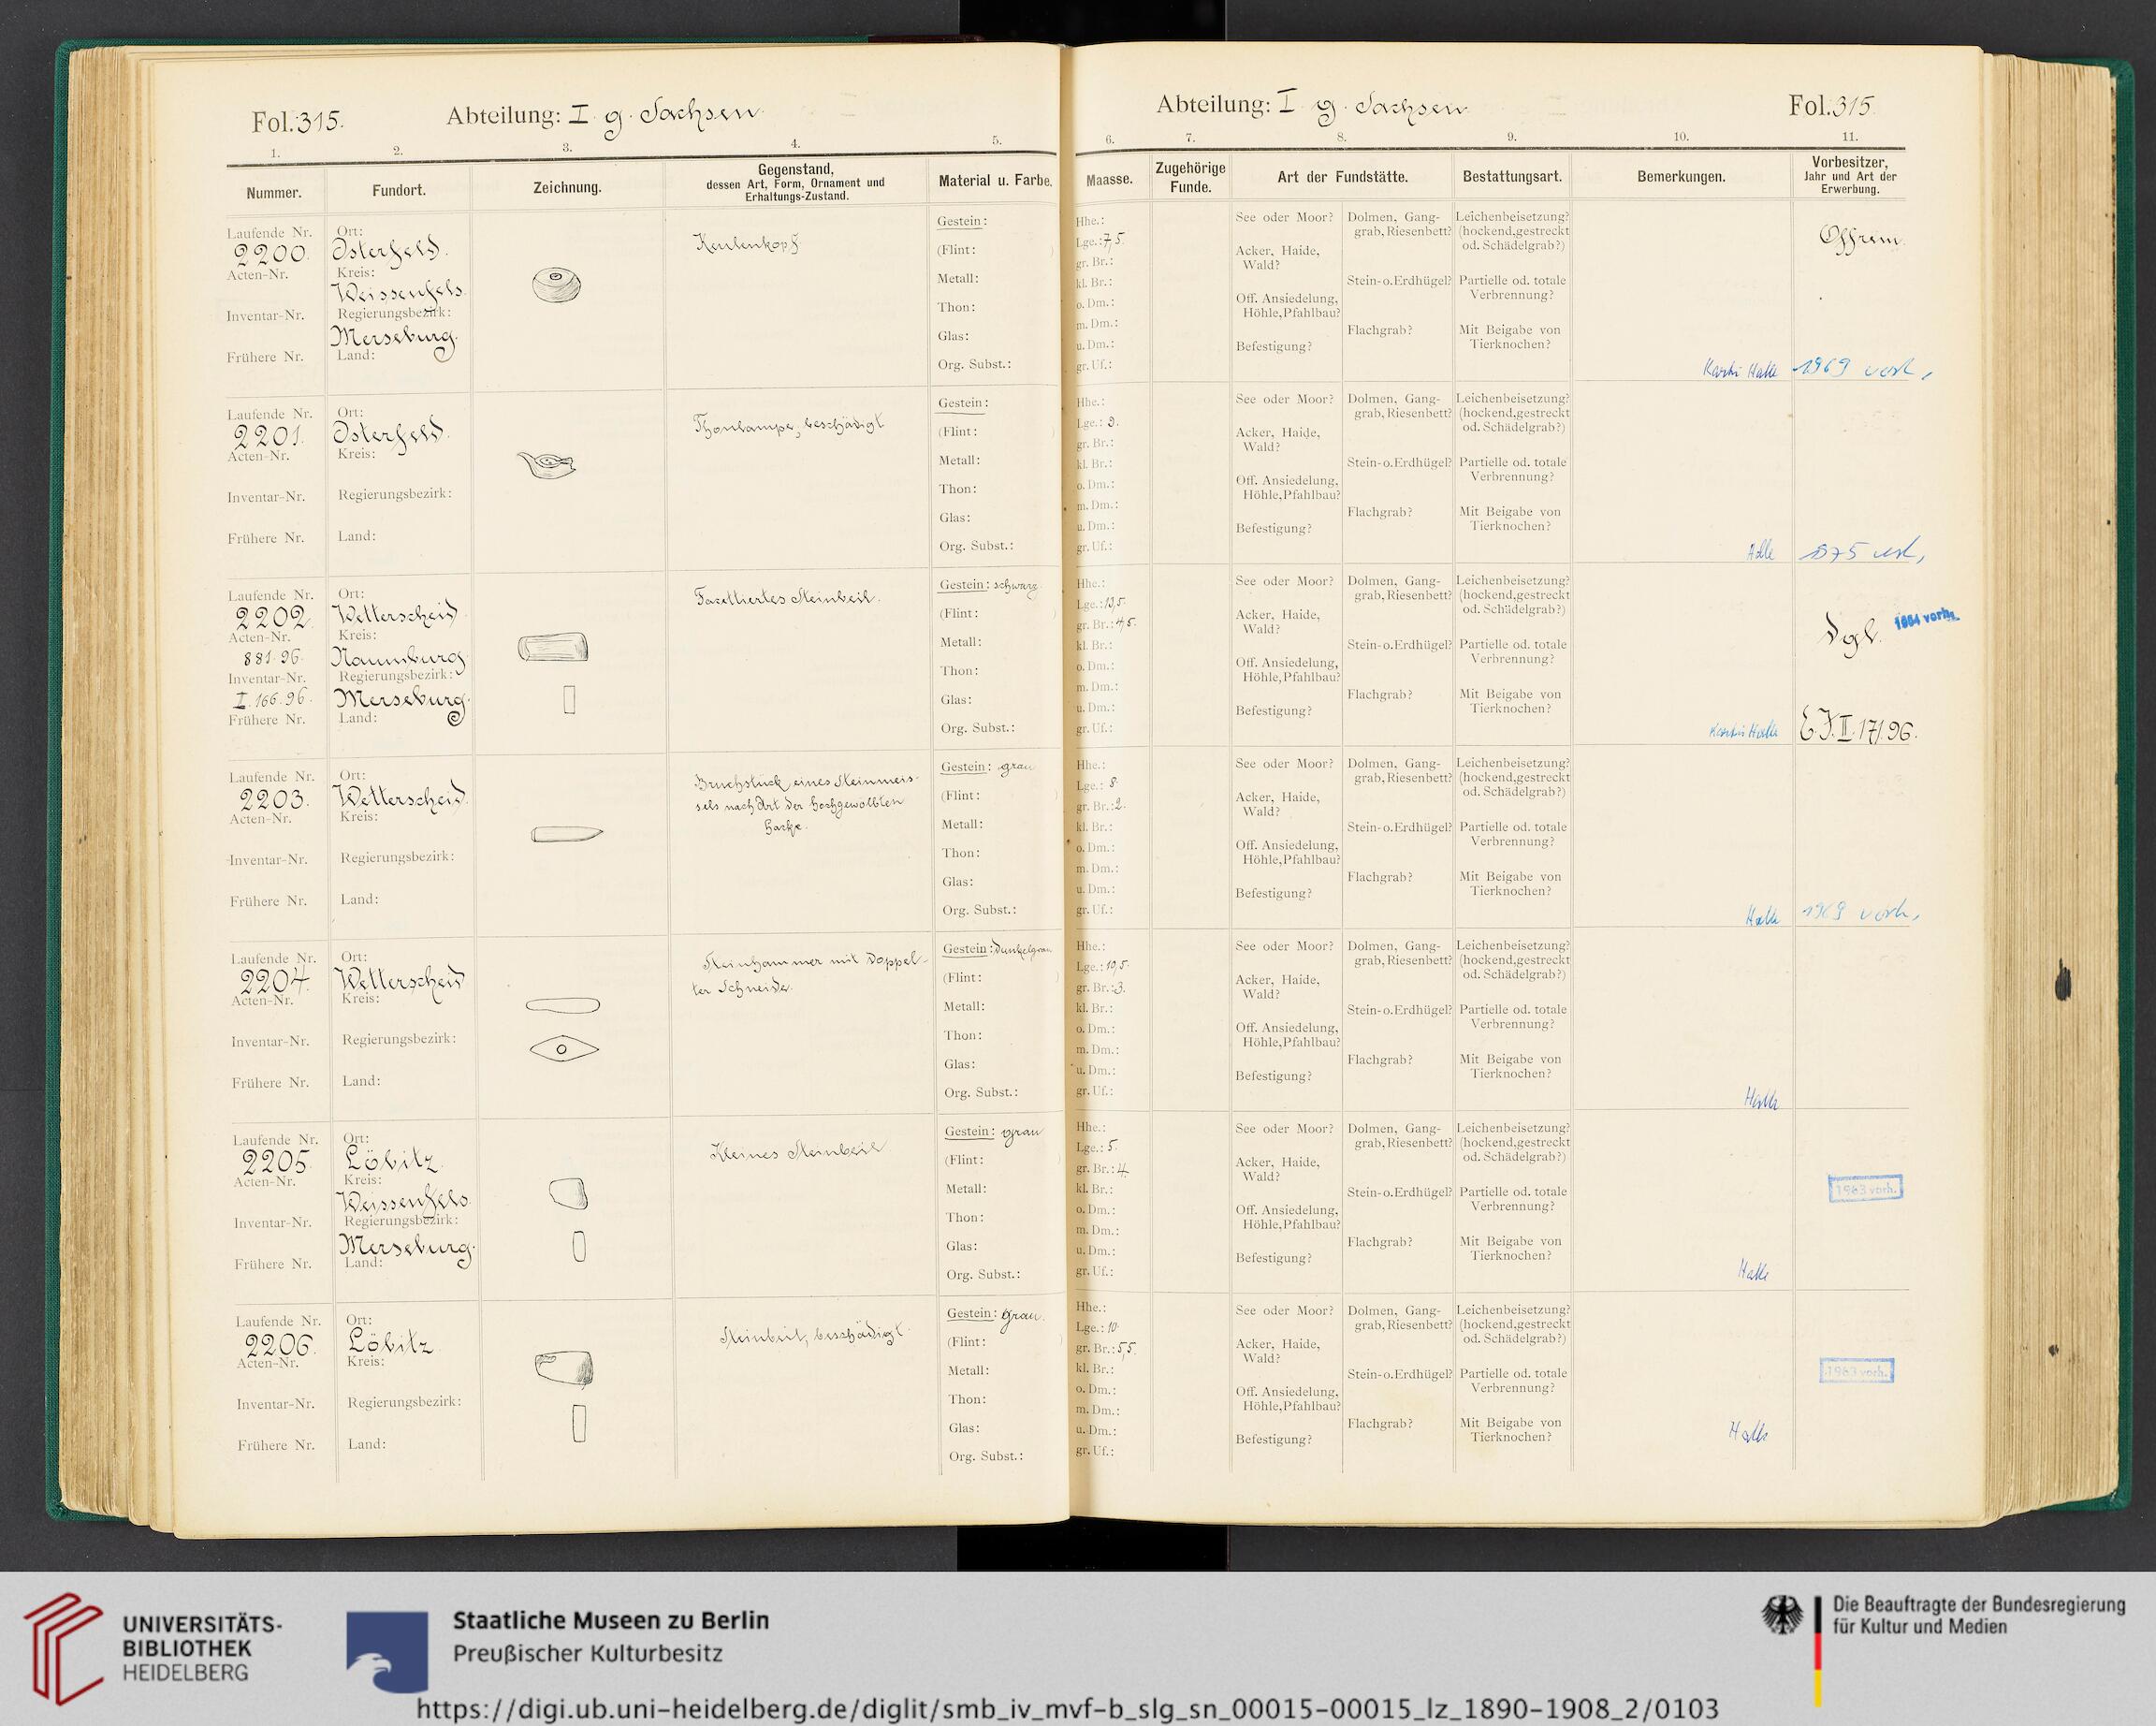 Fol. 315.
Abteilung: I g. Sachsen
1. 2. 3. 4. 5.
Nummer. Fundort. Zeichnung. Gegenstand, dessen Art, Form, Ornament und Erhaltungs-Zustand. Material u. Farbe.
Laufende Nr. 2200.
Acten-Nr.
Inventar-Nr.
Frühere Nr.
Ort: Osterfeld.
Kreis: Weissenfels.
Regierungsbezirk: Merseburg.
Land:
Keulenkopf
Gestein:
(Flint: )
Metall:
Thon:
Glas:
Org. Subst.:
Laufende Nr. 2201.
Acten-Nr.
Inventar-Nr.
Frühere Nr.
Ort: Osterfeld.
Kreis:
Regierungsbezirk:
Land:
Thonlampe, beschädigt
Gestein:
(Flint: )
Metall:
Thon:
Glas:
Org. Subst.:
Laufende Nr. 2202.
Acten-Nr. 881.96.
Inventar-Nr. I.166.96.
Frühere Nr.
Ort: Wetterscheid
Kreis: Naumburg
Regierungsbezirk: Merseburg.
Land:
Facettiertes Steinbeil.
Gestein: schwarz
(Flint: )
Metall:
Thon:
Glas:
Org. Subst.:
Laufende Nr. 2203.
Acten-Nr.
Inventar-Nr.
Frühere Nr.
Ort: Wetterscheid.
Kreis:
Regierungsbezirk:
Land:
Bruchstück eines Steinmeis-
sels nach Art der hochgewölbten
Hacke.
Gestein: grau
(Flint: )
Metall:
Thon:
Glas:
Org. Subst.:
Laufende Nr. 2204.
Acten-Nr.
Inventar-Nr.
Frühere Nr.
Ort: Wetterscheid
Kreis:
Regierungsbezirk:
Land:
Steinhammer mit doppel-
ter Schneide.
Gestein: dunkelgrau
(Flint: )
Metall:
Thon:
Glas:
Org. Subst.:
Laufende Nr. 2205
Acten-Nr.
Inventar-Nr.
Frühere Nr.
Ort: Löbitz.
Kreis: Weissenfels.
Regierungsbezirk: Merseburg.
Land:
Kleines Steinbeil
Gestein: grau
(Flint: )
Metall:
Thon:
Glas:
Org. Subst.:
Laufende Nr. 2206.
Acten-Nr.
Inventar-Nr.
Frühere Nr.
Ort: Löbitz
Kreis:
Regierungsbezirk:
Land:
Steinbeil, beschädigt.
Gestein: grau.
(Flint: )
Metall:
Thon:
Glas:
Org. Subst.:
Abteilung: I g. Sachsen
Fol. 315
6. 7. 8. 9. 10. 11.
Maasse. Zugehörige Funde. Art der Fundstätte. Bestattungsart. Bemerkungen. Vorbesitzer, Jahr und Art der Erwerbung.
Hhe.:
Lge.: 7,5.
gr. Br.:
kl. Br.:
o. Dm.:
m. Dm.:
u. Dm.:
gr. Uf.:
See oder Moor?
Acker, Haide, Wald?
Off. Ansiedelung, Höhle, Pfahlbau?
Befestigung?
Dolmen, Gang-
grab, Riesenbett?
Stein- o. Erdhügel?
Flachgrab?
Leichenbeisetzung?
(hockend, gestreckt
od. Schädelgrab?)
Partielle od. totale
Verbrennung?
Mit Beigabe von
Tierknochen?
Halle
1969 vorh.
Hhe.:
Lge.: 9.
gr. Br.:
kl. Br.:
o. Dm.:
m. Dm.:
u. Dm.:
gr. Uf.:
See oder Moor?
Acker, Haide, Wald?
Off. Ansiedelung, Höhle, Pfahlbau?
Befestigung?
Dolmen, Gang-
grab, Riesenbett?
Stein- o. Erdhügel?
Flachgrab?
Leichenbeisetzung?
(hockend, gestreckt
od. Schädelgrab?)
Partielle od. totale
Verbrennung?
Mit Beigabe von
Tierknochen?
Halle
Hhe.:
Lge.: 13,5.
gr. Br.: 4,5.
kl. Br.:
o. Dm.:
m. Dm.:
u. Dm.:
gr. Uf.:
See oder Moor?
Acker, Haide, Wald?
Off. Ansiedelung, Höhle, Pfahlbau?
Befestigung?
Dolmen, Gang-
grab, Riesenbett?
Stein- o. Erdhügel?
Flachgrab?
Leichenbeisetzung?
(hockend, gestreckt
od. Schädelgrab?)
Partielle od. totale
Verbrennung?
Mit Beigabe von
Tierknochen?
Halle
dgl.
1964 vorh.
E.J. II. 171.96.
Hhe.:
Lge.: 8
gr. Br.: 2.
kl. Br.:
o. Dm.:
m. Dm.:
u. Dm.:
gr. Uf.:
See oder Moor?
Acker, Haide, Wald?
Off. Ansiedelung, Höhle, Pfahlbau?
Befestigung?
Dolmen, Gang-
grab, Riesenbett?
Stein- o. Erdhügel?
Flachgrab?
Leichenbeisetzung?
(hockend, gestreckt
od. Schädelgrab?)
Partielle od. totale
Verbrennung?
Mit Beigabe von
Tierknochen?
Halle
1969 vorh.
Hhe.:
Lge.: 10,5.
gr. Br.: 3.
kl. Br.:
o. Dm.:
m. Dm.:
u. Dm.:
gr. Uf.:
See oder Moor?
Acker, Haide, Wald?
Off. Ansiedelung, Höhle, Pfahlbau?
Befestigung?
Dolmen, Gang-
grab, Riesenbett?
Stein- o. Erdhügel?
Flachgrab?
Leichenbeisetzung?
(hockend, gestreckt
od. Schädelgrab?)
Partielle od. totale
Verbrennung?
Mit Beigabe von
Tierknochen?
Halle
Hhe.:
Lge.: 5.
gr. Br.: 4.
kl. Br.:
o. Dm.:
m. Dm.:
u. Dm.:
gr. Uf.:
See oder Moor?
Acker, Haide, Wald?
Off. Ansiedelung, Höhle, Pfahlbau?
Befestigung?
Dolmen, Gang-
grab, Riesenbett?
Stein- o. Erdhügel?
Flachgrab?
Leichenbeisetzung?
(hockend, gestreckt
od. Schädelgrab?)
Partielle od. totale
Verbrennung?
Mit Beigabe von
Tierknochen?
Halle
1963 vorh.
Hhe.:
Lge.: 10
gr. Br.: 5,5.
kl. Br.:
o. Dm.:
m. Dm.:
u. Dm.:
gr. Uf.:
See oder Moor?
Acker, Haide, Wald?
Off. Ansiedelung, Höhle, Pfahlbau?
Befestigung?
Dolmen, Gang-
grab, Riesenbett?
Stein- o. Erdhügel?
Flachgrab?
Leichenbeisetzung?
(hockend, gestreckt
od. Schädelgrab?)
Partielle od. totale
Verbrennung?
Mit Beigabe von
Tierknochen?
Halle
1963 vorh.
UNIVERSITÄTS-
BIBLIOTHEK
HEIDELBERG
Staatliche Museen zu Berlin
Preußischer Kulturbesitz
Die Beauftragte der Bundesregierung
für Kultur und Medien
https://digi.ub.uni-heidelberg.de/diglit/smb_iv_mvf-b_slg_sn_00015-00015_lz_1890-1908_2/0103